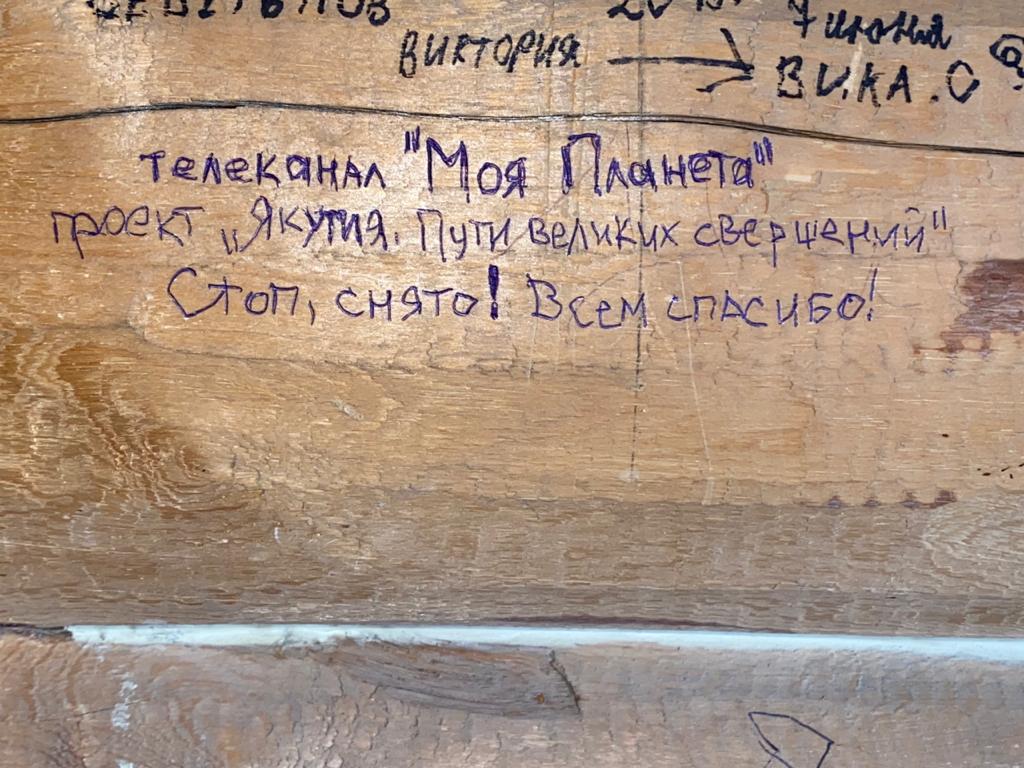 7 июня
ВИКТОРИЯ → ВИКА.О
телеканал "Моя Планета"
проект „Якутия. Пути великих свершений"
Стоп, снято! Всем спасибо!